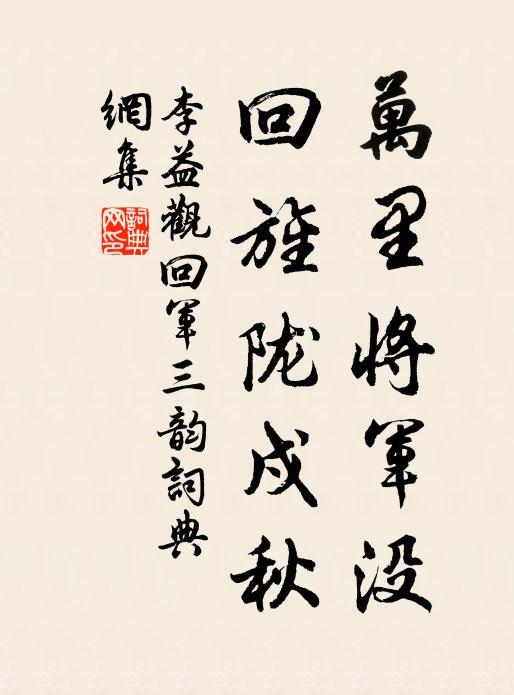 萬里將軍没
回旌陇戍秋
李益觀回軍三韵詞典
網集
詞典网印